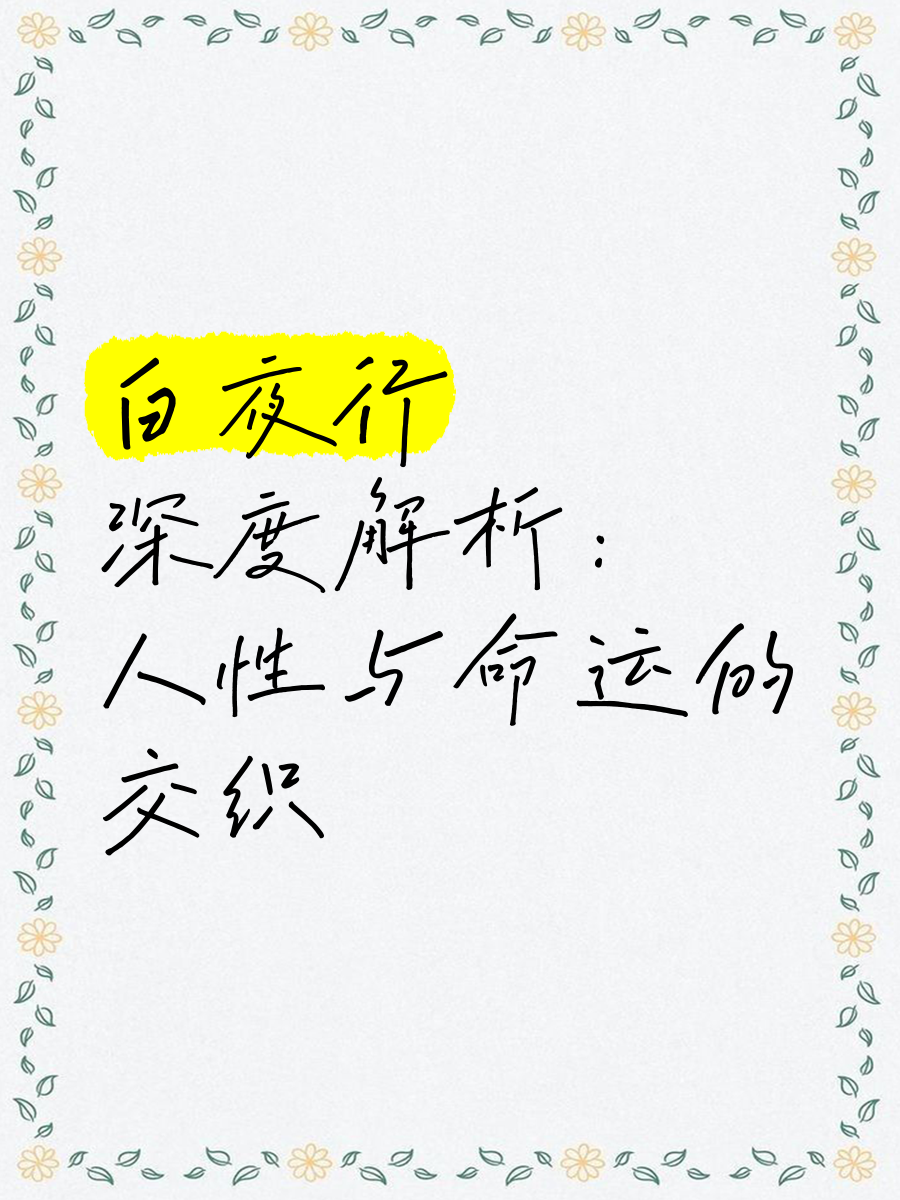 白夜行
深度解析：
人性与命运的
交织